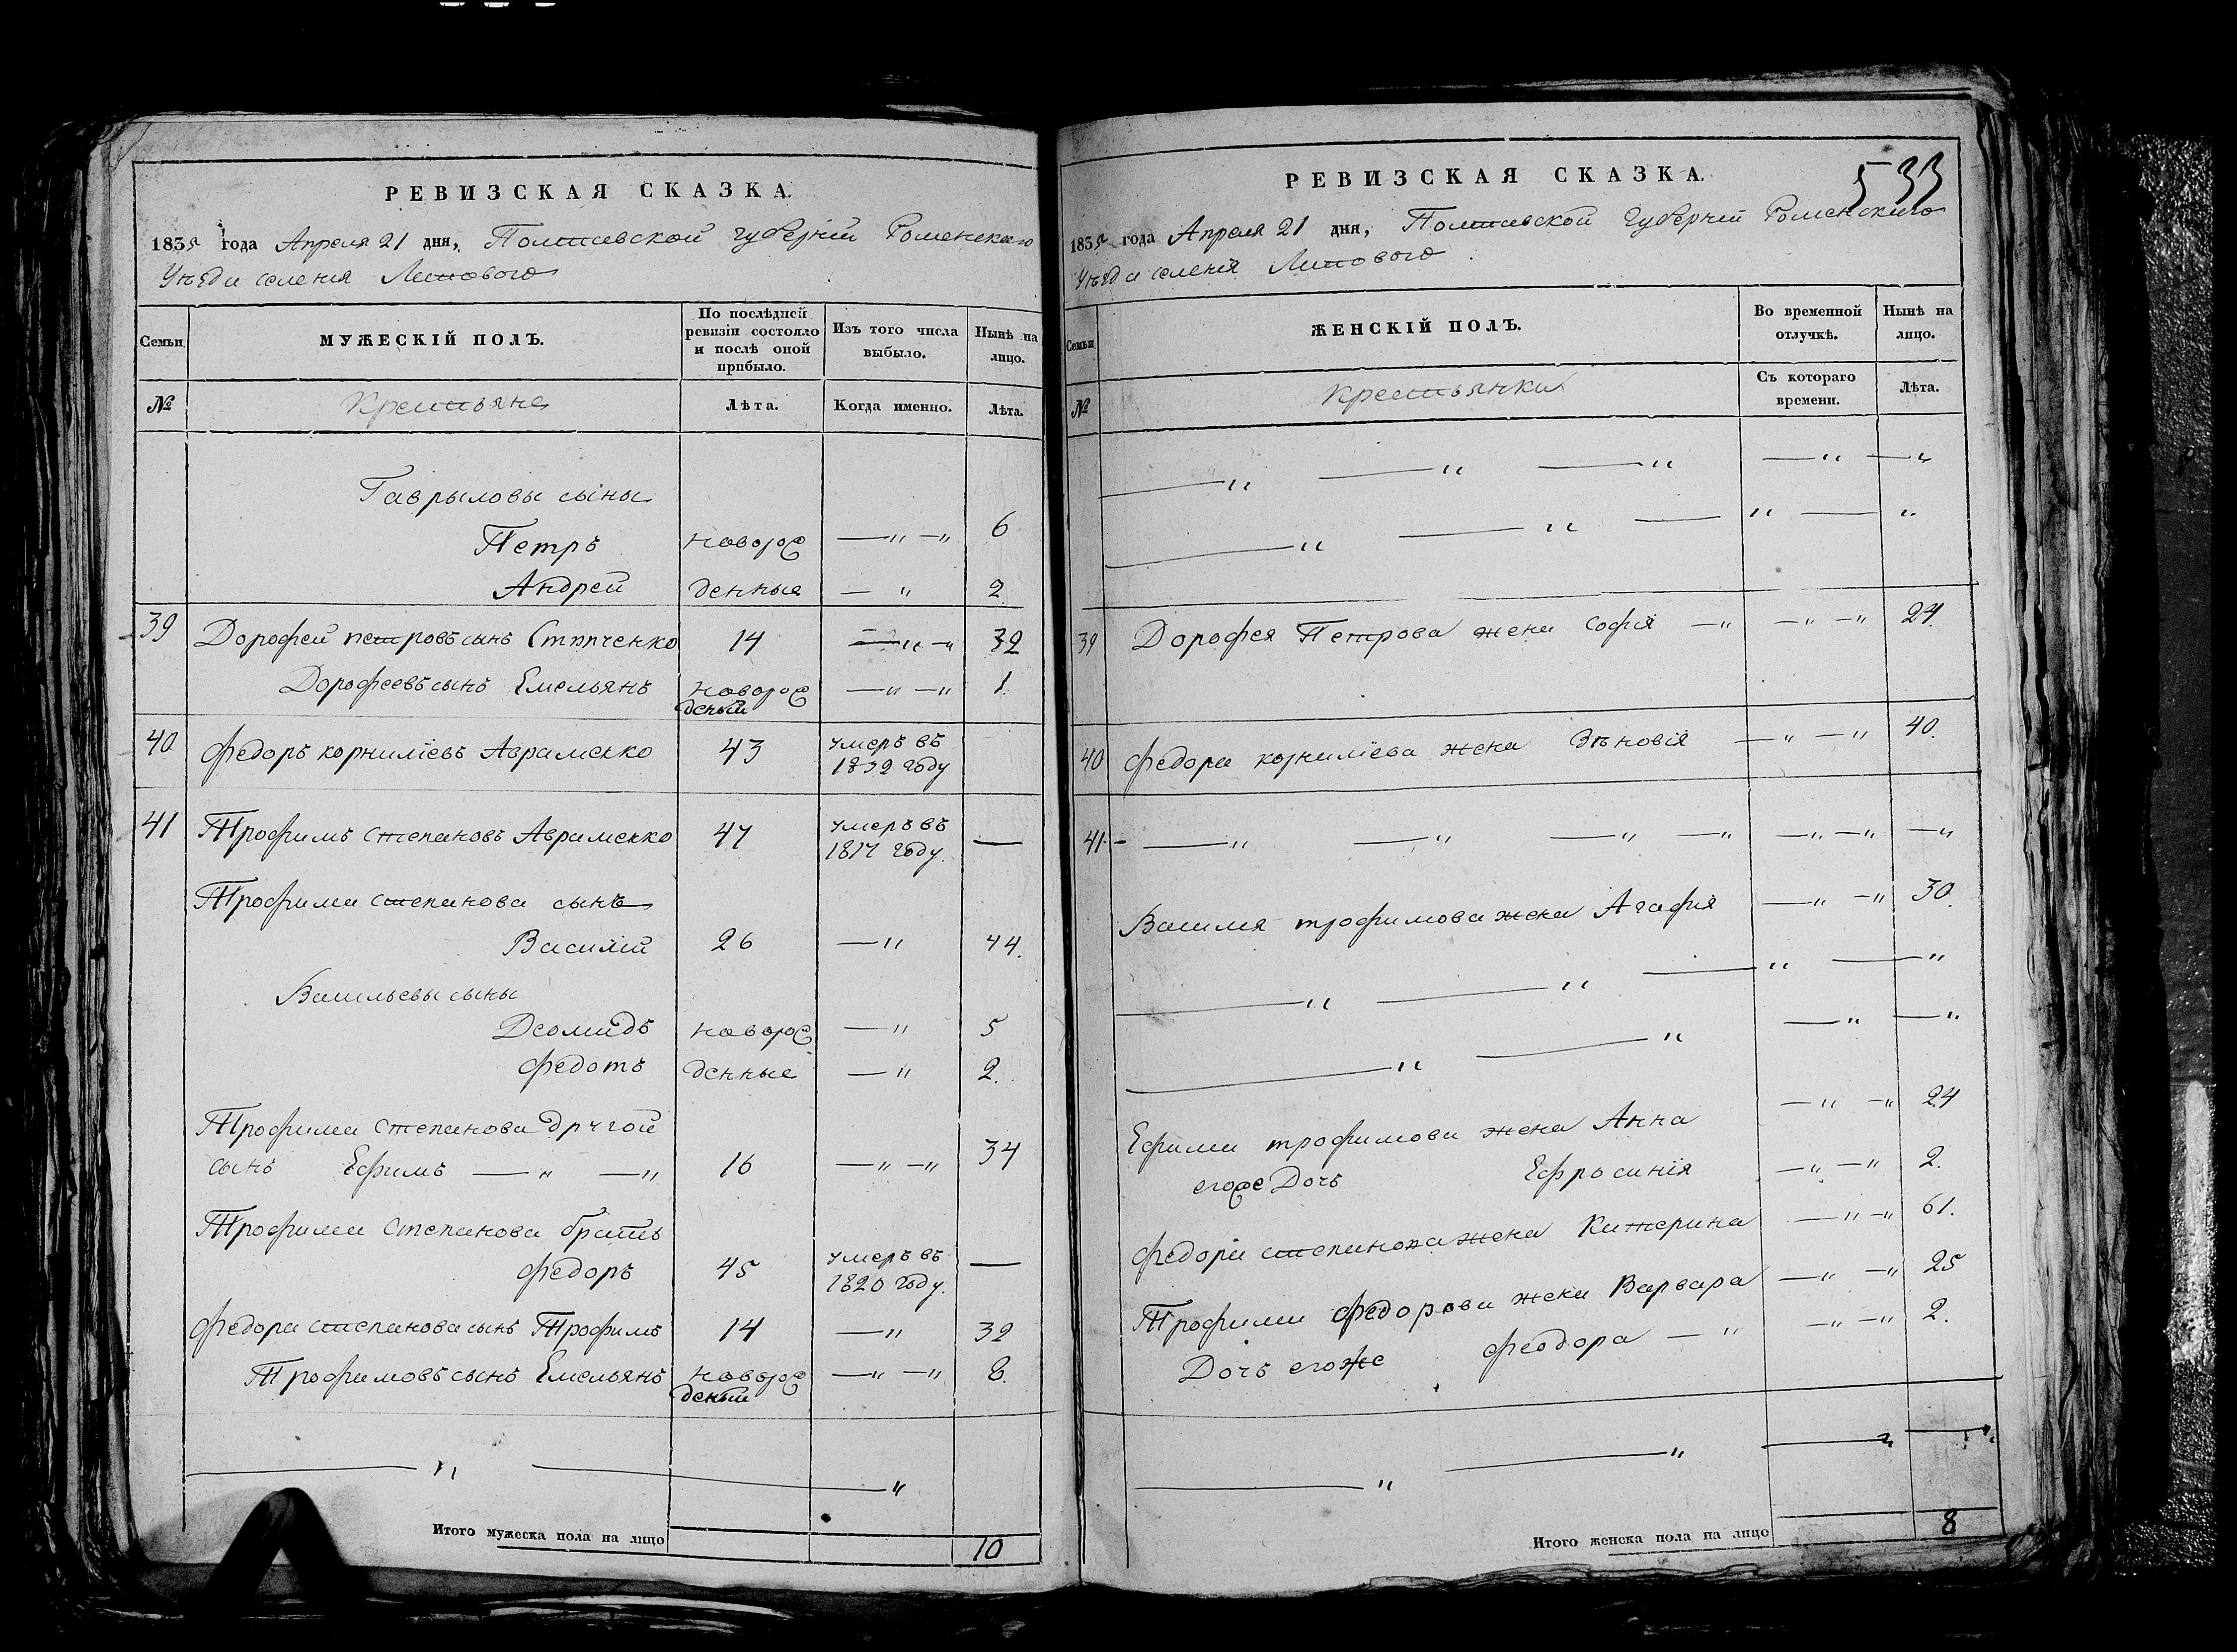 РЕВИЗСКАЯ СКАЗКА.
1835 года Апреля 21 дня, Полтавской губерніи Роменского
Уѣзда селенія Липового
Семьи
МУЖЕСКІЙ ПОЛЪ.
По послѣдней ревизіи состояло и послѣ оной прибыло.
Изъ того числа выбыло.
Нынѣ на лицо.
№
Крестьяне
Лѣта.
Когда именно.
Лѣта.
Гаврыловы сыны
Петръ новорож —„ —„ 6
Андрей денные — „ 2
39 Дорофей петровъ сынъ 14 —„ —„ 32
Дорофеевъ сынъ Емельянъ новорож —„ —„ 1.
деный
40 Федоръ корниліевъ Авраменко 43 умеръ въ
1832 году
41 Трофимъ степановъ Авраменко 47 умеръ въ —
1817 году.
Трофима степанова сынъ
Василій 26 —„ 44.
Васильевы сыны
Деомидъ новорож —„ 5
Федотъ денные —„ 2.
Трофима степанова другой
сынъ Ефимъ —„ —„ 16 —„ —„ 34
Трофима Степанова братъ
Федоръ 45 умеръ въ —
1820 году.
Федора степанова сынъ Трофимъ 14 —„ 32
Трофимовъ сынъ Емельянъ новорож —„ —„ 8.
деный
—„ —„
Итого мужеска пола на лицо 10
533
РЕВИЗСКАЯ СКАЗКА.
1835 года Апреля 21 дня, Полтавской Губерніи Роменского
Уѣзда селенія Липового
Семьи
ЖЕНСКІЙ ПОЛЪ.
Во временной отлучкѣ.
Нынѣ на лицо.
№
крестьянки
Съ котораго времени.
Лѣта.
—„ —„ —„ —„ —„
—„ —„ —„ —„
39 Дорофея Петрова жена Софія —„ —„ —„ 24.
40 Федора корниліева жена Зѣновія —„ —„ 40.
41. —„ —„ —„ —„ —„ —„ —„
Василя трофимова жена Агафія —„ —„ 30.
—„ —„ —„ —„
—„ —„ —„ —„
Ефима трофимова жена Анна —„ —„ 24
егоже Дочь Ефросинія —„ —„ 2.
Федора степанова жена Катерина —„ —„ 61.
Трофима Федорова жена Варвара —„ —„ 25
Дочь егоже Феодора —„ —„ —„ 2.
—„ —„ —„ —„
Итого женска пола на лицо 8